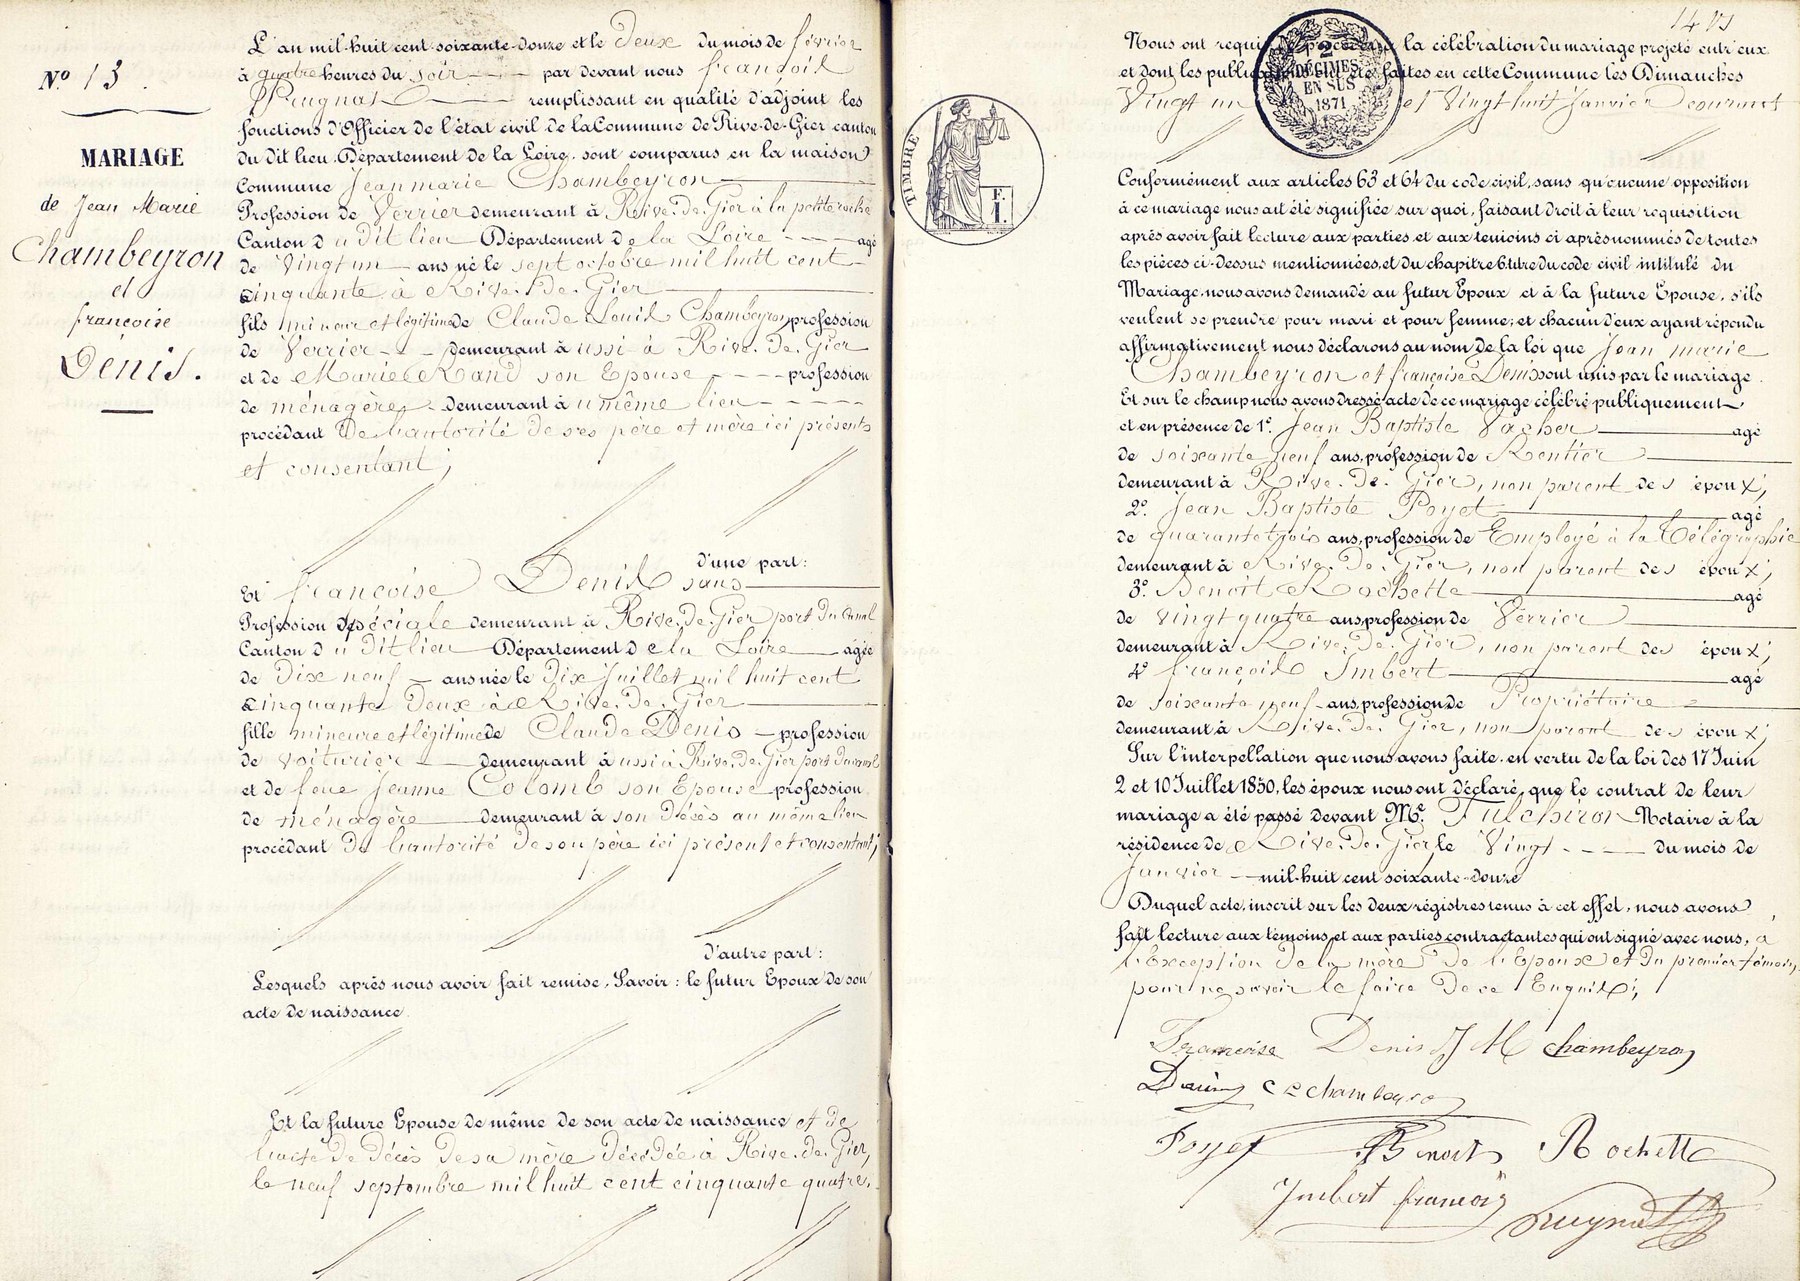 N.º 13.
MARIAGE
de Jean Marie
Chambeyron
et
françoise
Dénis.
L'an mil-huit cent-soixante-douze et le Deux du mois de février
à quatre heures du soir par devant nous françois
Prugnat remplissant en qualité d'adjoint les
fonctions d'Officier de l'état civil de la Commune de Rive-de-Gier canton
du dit lieu Département de la Loire, sont comparus en la maison
Commune Jean marie Chambeyron
Profession de Verrier demeurant à Rive-de-Gier à la petite roche
Canton du dit lieu Département de la Loire agé
de Vingt un ans né le sept octobre mil huit cent
cinquante à Rive-de-Gier
fils mineur et légitime de Claude Louis Chambeyron, profession
de Verrier demeurant à ussi à Rive-de-Gier
et de Marie Rand son Epouse profession
de ménagère demeurant à u même lieu
procédant de l'autorité de ses père et mère ici présents
et consentant;
d'une part:
Et françoise Denis sans
Profession spéciale demeurant à Rive-de-Gier port du Canal
Canton du dit lieu Département de la Loire agée
de Dix neuf ans née le Dix Juillet mil huit cent
cinquante deux à Rive-de-Gier
fille mineure et légitime de Claude Denis profession
de voiturier demeurant à ussi à Rive-de-Gier port du canal
et de feue Jeanne Colomb son Epouse profession
de ménagère demeurant à son décès au même lieu
procédant de l'autorité de son père ici présent et consentant;
d'autre part:
Lesquels après nous avoir fait remise, Savoir: le futur Epoux de son
acte de naissance
Et la future Epouse de même de son acte de naissance et de
l'acte de décès de sa mère décédée à Rive-de-Gier,
le neuf septembre mil huit cent cinquante quatre.
TIMBRE
F.
I.
2
DÉCIMES
EN SUS
1871
Nous ont requis de procéder à la célébration du mariage projeté entr'eux
et dont les publications ont été faites en cette Commune les Dimanches
Vingt un et Vingt huit Janvier Dcourant
Conformément aux articles 63 et 64 du code civil, sans qu'aucune opposition
à ce mariage nous ait été signifiée sur quoi, faisant droit à leur requisition
après avoir fait lecture aux parties et aux temoins ci après nommés de toutes
les pièces ci-dessus mentionnées, et du chapitre 6 titre du code civil intitulé du
Mariage, nous avons demandé au futur Epoux et à la future Epouse, s'ils
veulent se prendre pour mari et pour femme; et chacun d'eux ayant répondu
affirmativement nous déclarons au nom de la loi que Jean marie
Chambeyron et françoise Denis sont unis par le mariage.
Et sur le champ nous avons dressé acte de ce mariage célébré publiquement
et en présence de 1º. Jean Baptiste Vacher agé
de soixante neuf ans, profession de Rentier
demeurant à Rive-de-Gier, non parent des époux,
2º. Jean Baptiste Poyet agé
de quarante trois ans, profession de Employé à la Télégraphie
demeurant à Rive-de-Gier, non parent des époux;
3º Benoit Rochette agé
de vingt quatre ans, profession de Verrier
demeurant à Rive-de-Gier, non parent des époux;
4º françois Imbert agé
de soixante neuf ans, profession de Propriétaire
demeurant à Rive-de-Gier, non parent des époux;
Sur l'interpellation que nous avons faite en vertu de la loi des 17 Juin
2 et 10 Juillet 1850, les époux nous ont déclaré que le contrat de leur
mariage a été passé devant Mᵉ. Fulchiron Notaire à la
résidence de Rive-de-Gier, le Vingt du mois de
Janvier mil-huit cent soixante-douze
Duquel acte, inscrit sur les deux régistres tenus à cet effet, nous avons
fait lecture aux témoins et aux parties contractantes qui ont signé avec nous, à
l'Exception de la mère de l'Epoux et du premier témoin,
pour ne savoir le faire de ce Enquis;
Francoise Denis J M Chambeyron
Denis C L chambeyron
Poyet Benoit Rochette
Imbert françois Prugnat